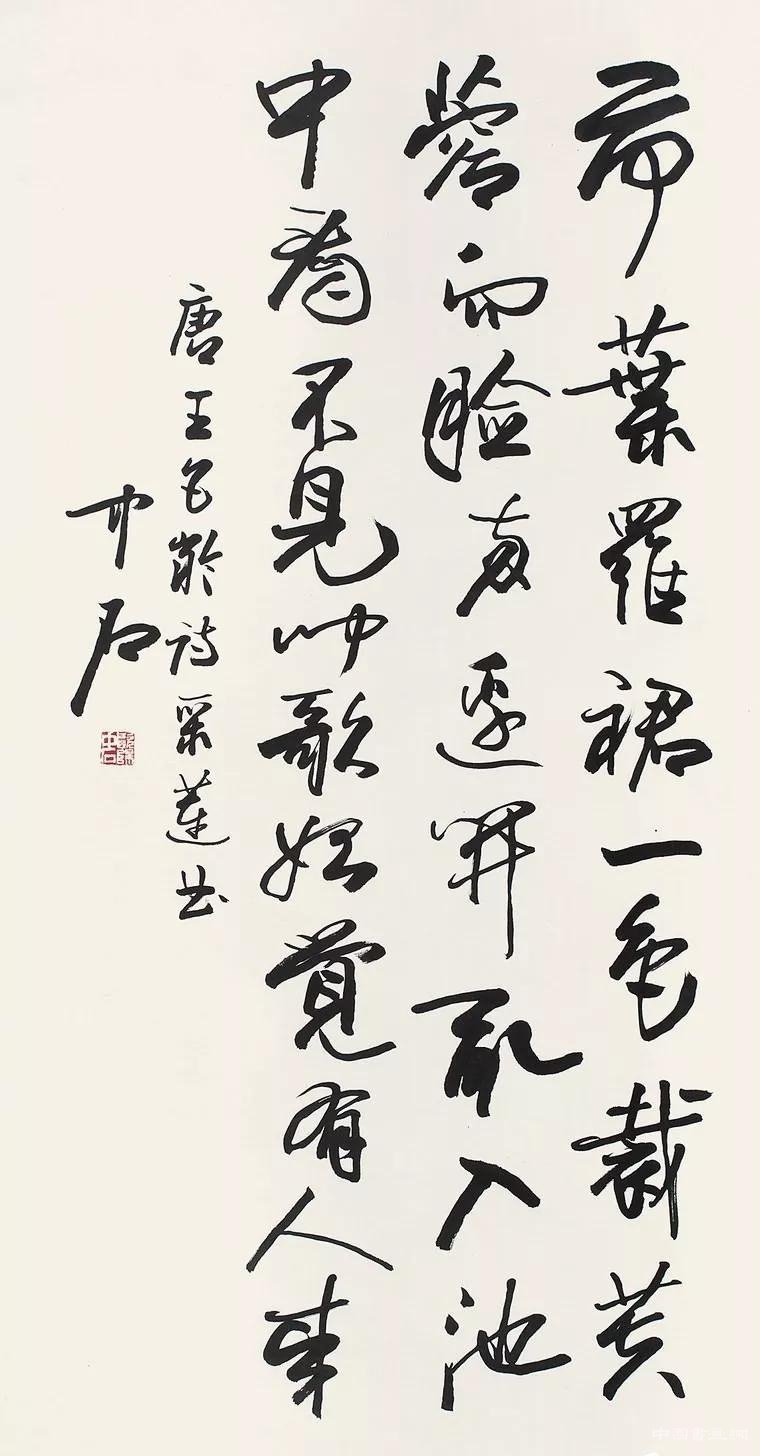 荷葉羅裙一色裁芙
蓉向臉两邊開亂入池
中看不見聞歌始覺有人来
唐王昌齡詩采蓮曲
中石